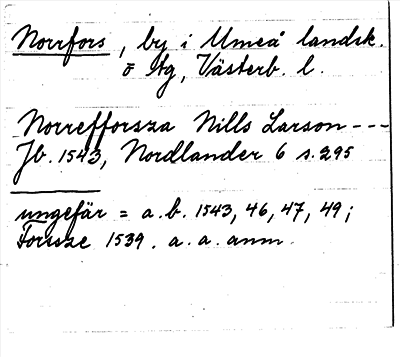 Norrfors, by i Umeå landsk.
o tg, Västerb. l.
Norrefforsza Nills Larson ---
Jb. 1543, Nordlander 6 s. 295
ungefär = a. b. 1543, 46, 47, 49;
Forssze 1539. a. a. anm.